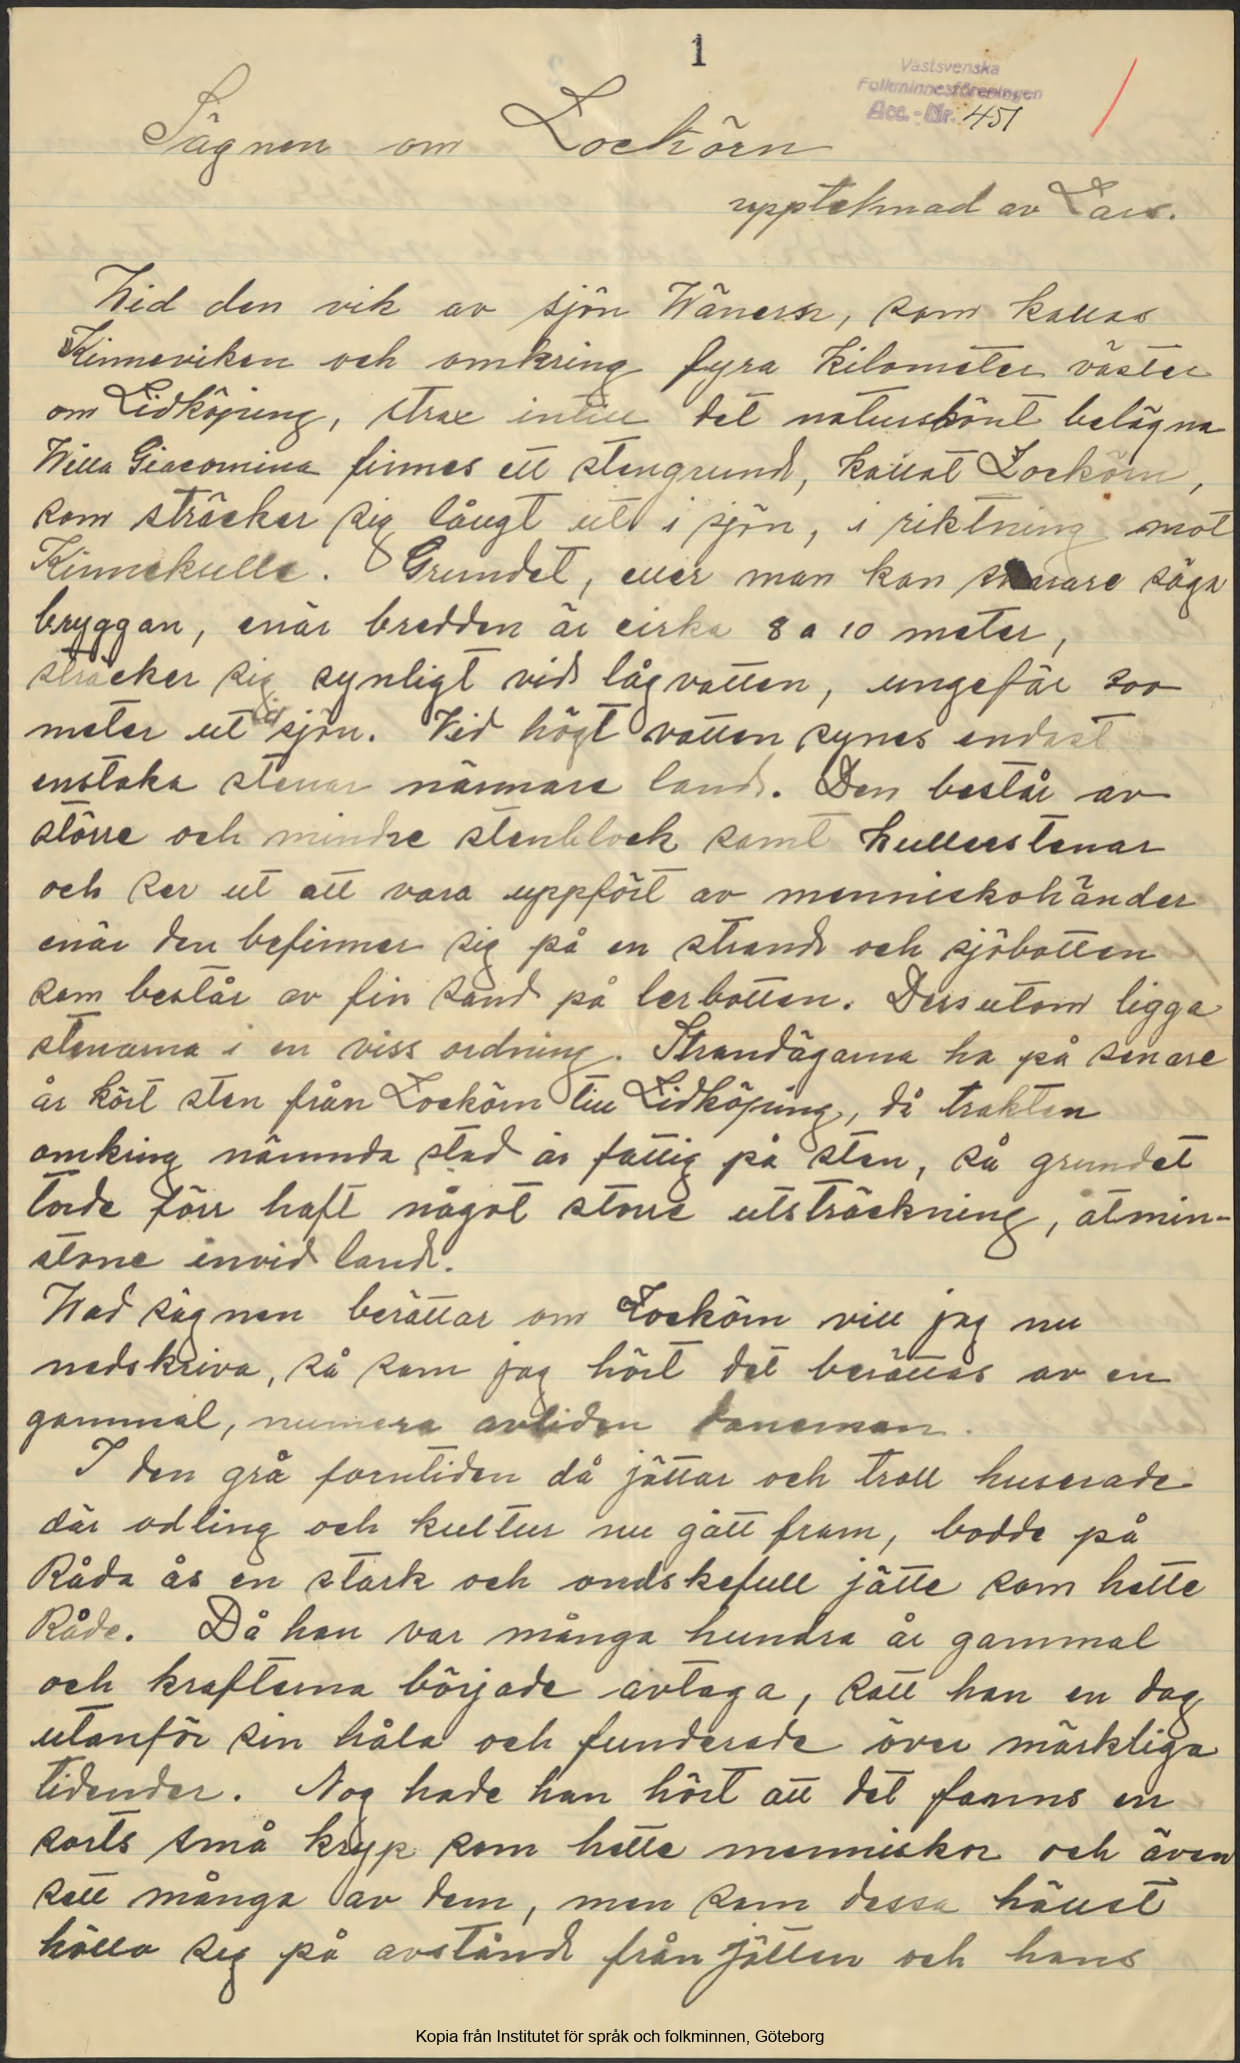 1
Västsvenska
Folkminnesföreningen
Acc.-Nr. 451
Sägnen om Lockörn
uppteknad av Lars.
Wid den vik av sjön Wänern, som kallas
Kinneviken och omkring fyra kilometer väster
om Lidköping, strax intill det naturskönt belägna
Willa Giacomina finnes ett stengrund, kallat Lockörn,
som sträcker sig långt ut i sjön, i riktning mot
Kinnekulle. Grundet, eller man kan snarare säga
bryggan, enär bredden är cirka 8 a 10 meter,
sträcker sig synligt vid lågvatten, ungefär 200
meter ut i sjön. Vid högt vatten synes endast
enstaka stenar närmare land. Den består av
större och mindre stenblock samt kullerstenar
och ser ut att vara uppfört av menniskohänder
enär den befinner sig på en strand och sjöbotten
som består av fin sand på lerbotten. Dessutom ligga
stenarna i en viss ordning. Strandägarna ha på senare
år kört sten från Lockörn till Lidköping, då trakten
omkring nämnda stad är fattig på sten, så grundet
torde förr haft något större utsträckning, åtmin-
stone invid land.
Wad sägnen berättar om Lockörn vill jag nu
nedskriva, så som jag hört det berättas av en
gammal, numera avliden danneman.
I den grå forntiden då jättar och troll huserade
där odling och kultur nu gått fram, bodde på
Råda ås en stark och ondskefull jätte som hette
Råde. Då han var många hundra år gammal
och krafterna började avtaga, satt han en dag
utanför sin håla och funderade över märkliga
tidender. Nog hade han hört att det fanns en
sorts små kryp som hette menniskor och även
sett många av dem, men som dessa hällst
hölla sig på avstånd från jätten och hans
Kopia från Institutet för språk och folkminnen, Göteborg